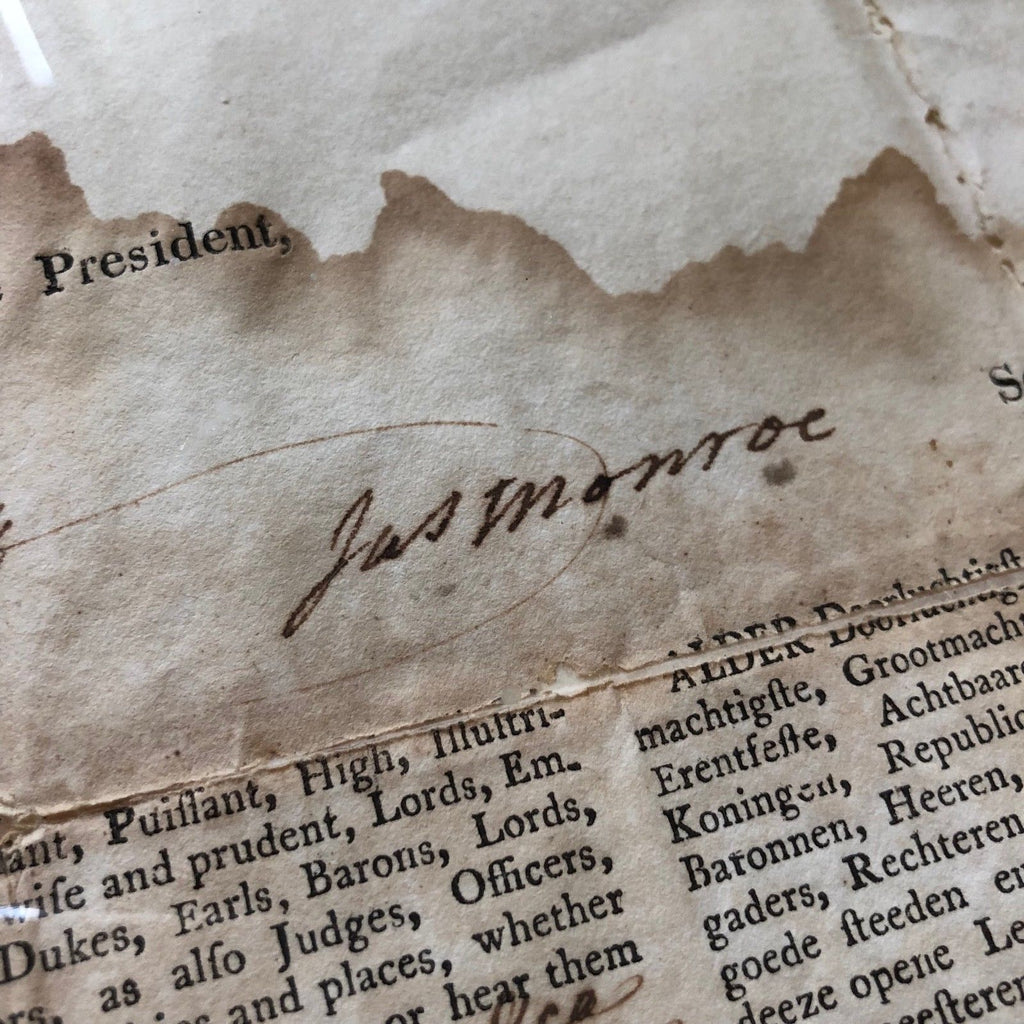 President,
Jas Monroe
Puiſſant, High, Illuſtri-
wiſe and prudent, Lords, Em-
Dukes, Earls, Barons, Lords,
as alſo Judges, Officers,
and places, whether
or hear them
ALDER Doorluchtigſt
machtigſte, Grootmach
Erentfeſte, Achtbaar
Koningen, Republic
Baronnen, Heeren,
gaders, Rechteren
goede ſteeden en
deeze opene Le